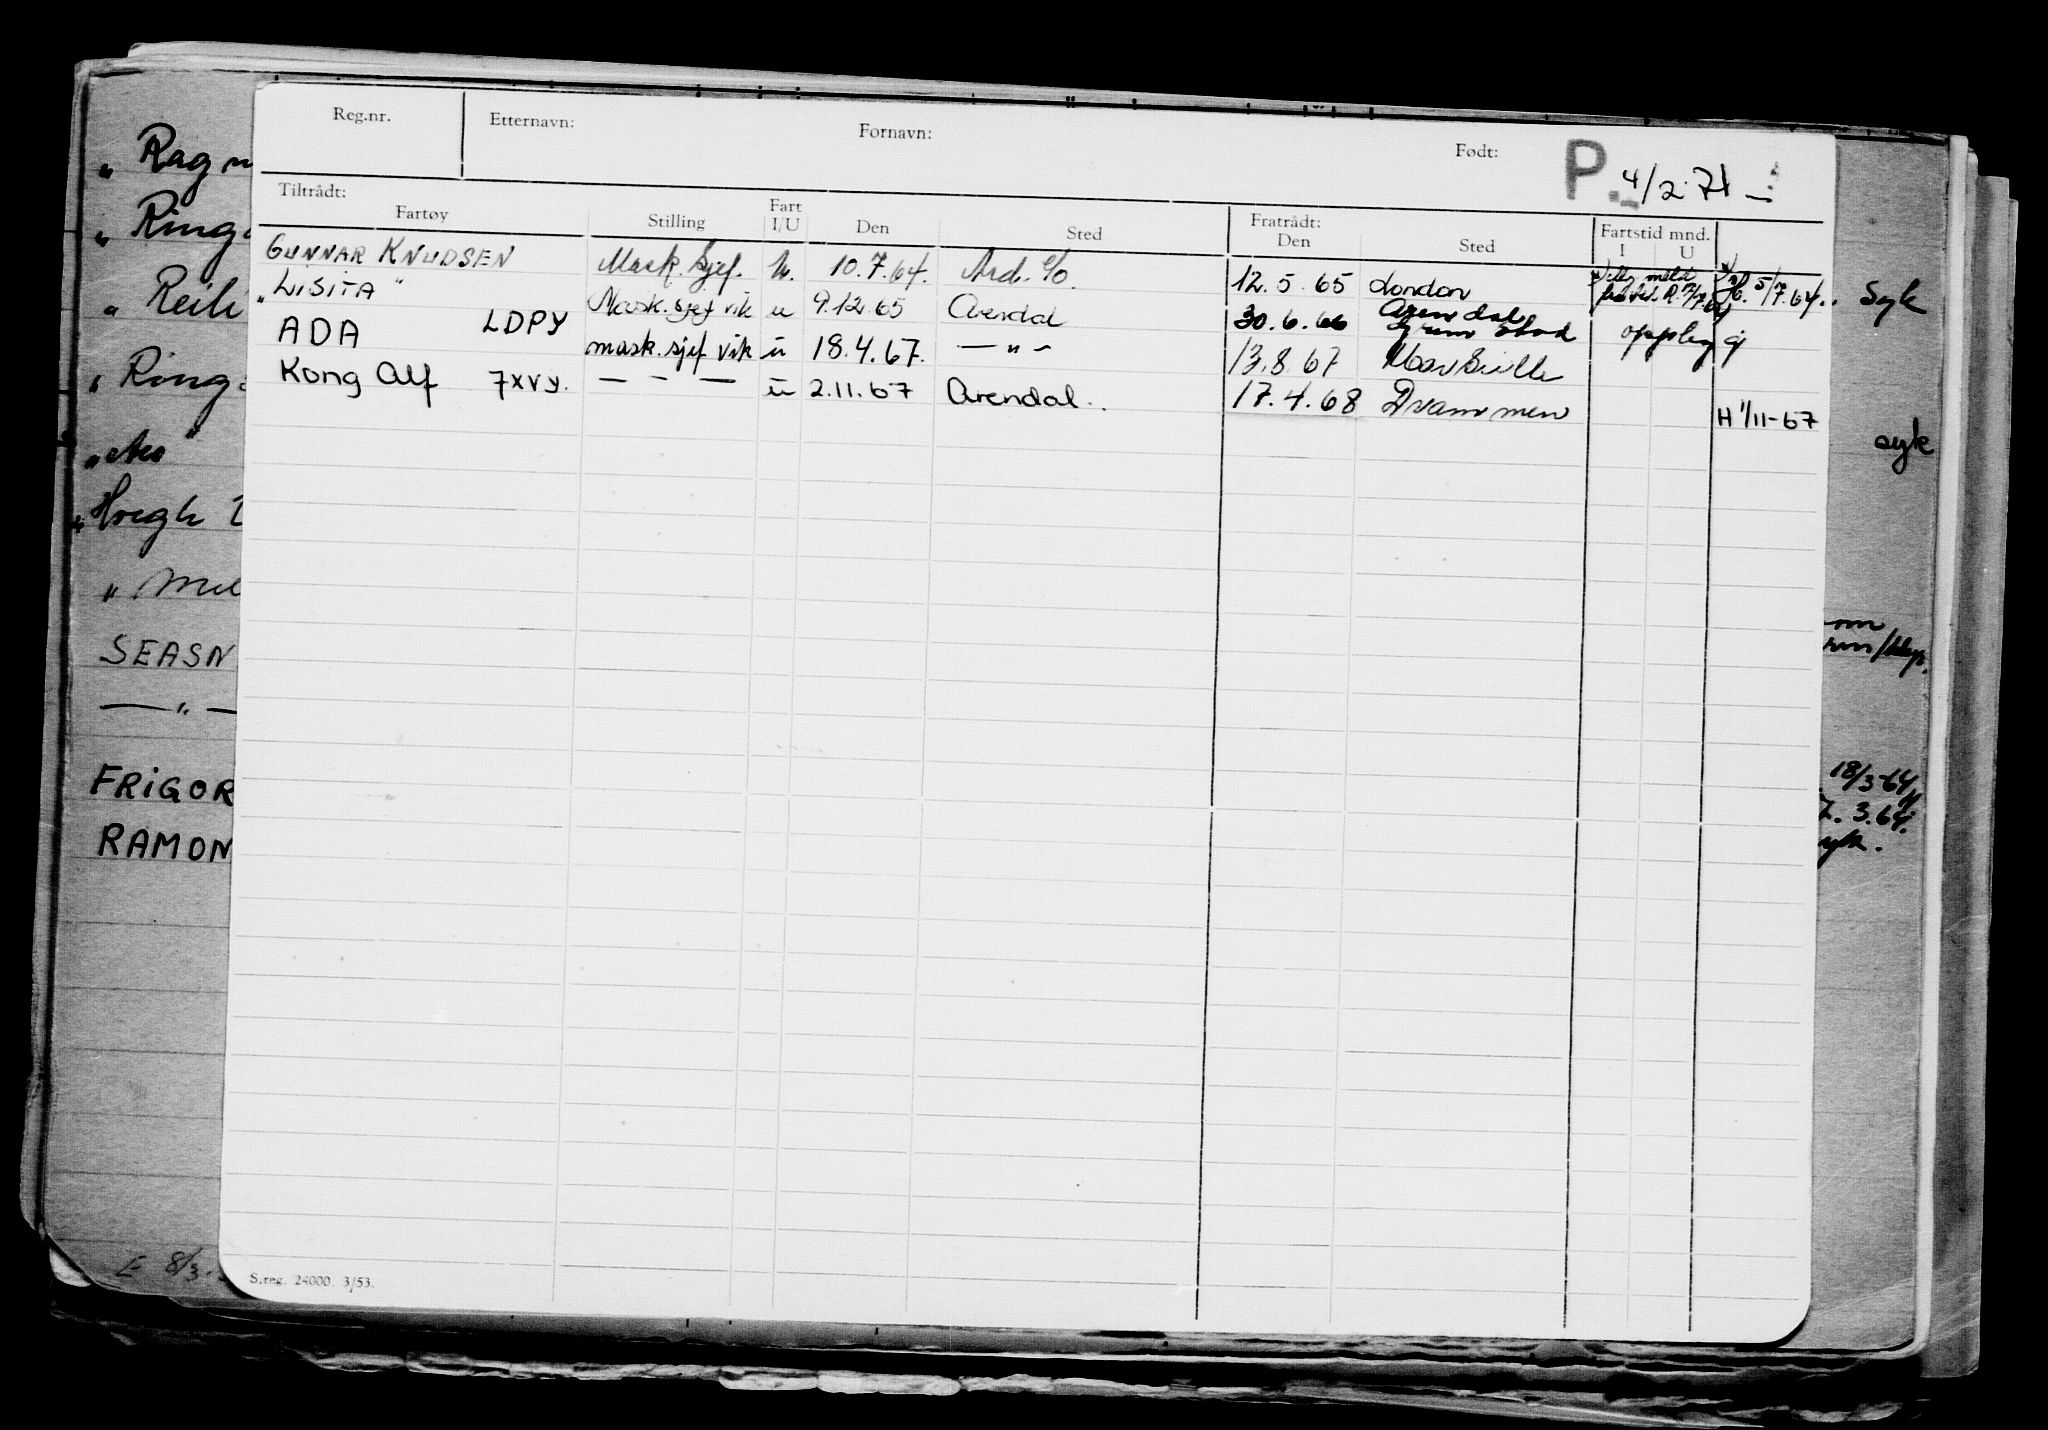 Reg.nr. Etternavn: Fornavn: Født: P. 4/2.71
Tiltrådt: Fratrådt:
Fartøy Stilling Fart I/U Den Sted Den Sted Fartstid mnd. I U
GUNNAR KNUDSEN Mask.sjef. U. 10.7.64. Ard. 12.5.65 London H. 5/7.64.
"LISITA" Mask.sjef vik u 9.12.65 Arendal 30.6.66 Arendal Grimstad opplag
ADA LDPY mask.sjef vik u 18.4.67. — " — 13.8.67 Marseille
Kong Alf 7XVY. — - — u 2.11.67 Arendal. 17.4.68 Drammen H 1/11-67
S.reg. 24000. 3/53.
" Ragn
" Ring
" Reili
Syk
" Ring
syk
" Høegh
" Mel
SEASN
— " —
FRIGOR 18/3-64
RAMON 7. 3.64.
E 8/3.